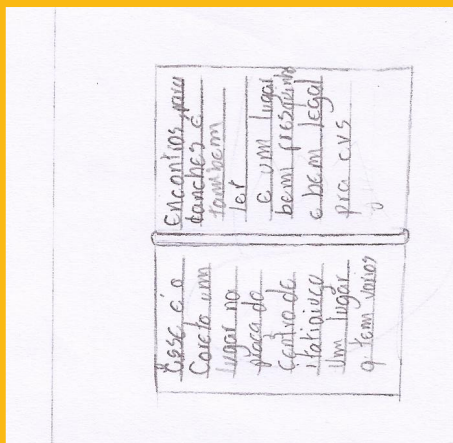 Esse é o
Coreto um
lugar na
praça do
centro de
itatiaiuçu
um lugar
q tem varios
encontros para
lanches e
tambem
ler
e um lugar
bem
e bem legal
pra cvs